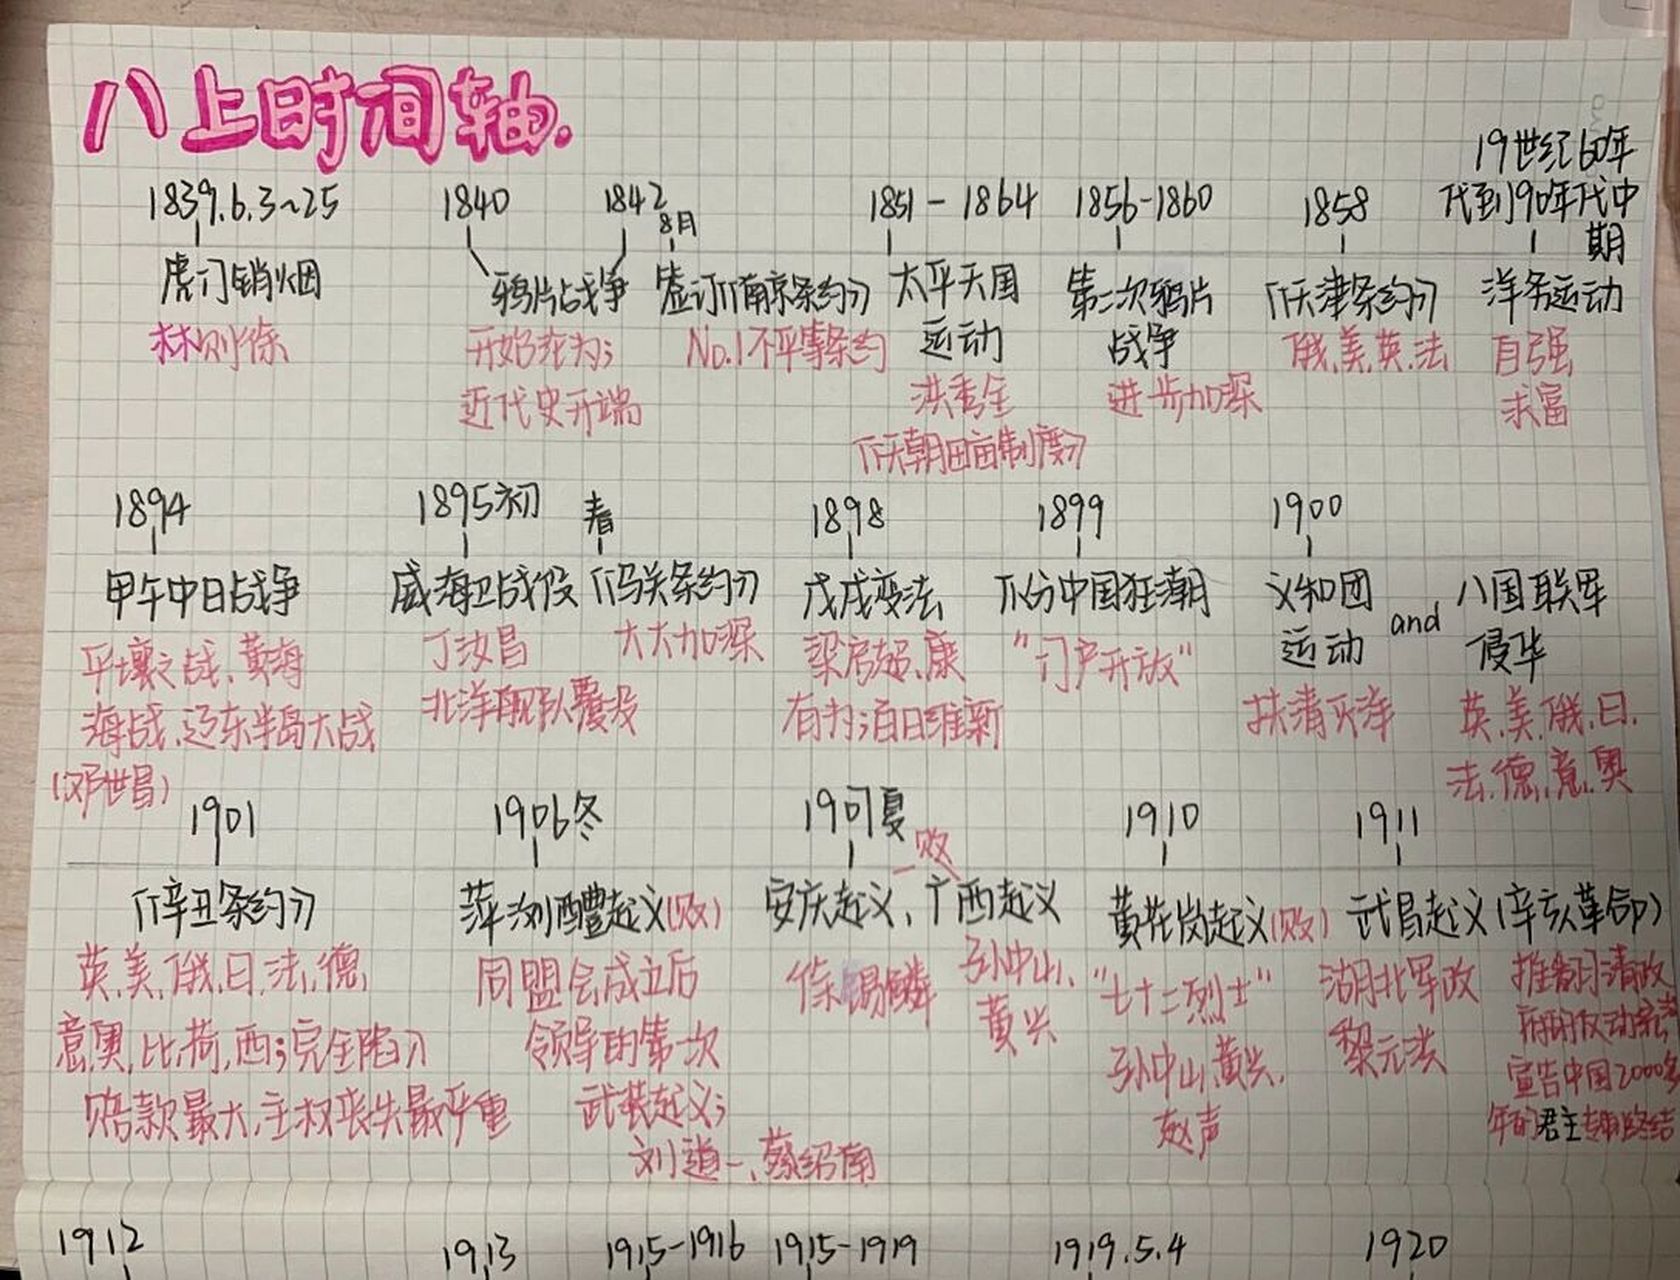 八上时间轴.
19世纪60年
1839.6.3~25 1840 1842 8月 1851-1864 1856-1860 1858 代到90年代中
期
虎门销烟 鸦片战争 签订《南京条约》 太平天国 第二次鸦片 《天津条约》 洋务运动
林则徐 开始沦为; No.1不平等条约 运动 战争 俄.美.英.法 自强
近代史开端 洪秀全 进步加深 求富
《天朝田亩制度》
1894 1895初 春 1898 1899 1900
甲午中日战争 威海卫战役 《马关条约》 戊戌变法 瓜分中国狂潮 义和团 and 八国联军
平壤之战、黄海 丁汝昌 大大加深 梁启超、康 "门户开放" 运动 侵华
海战、辽东半岛大战 北洋舰队覆没 有为;百日维新 扶清灭洋 英.美.俄.日.
(邓世昌) 法.德.意.奥
1901 1906冬 1907夏 1910 1911
败
《辛丑条约》 萍浏醴起义(败) 安庆起义、广西起义 黄花岗起义(败) 武昌起义(辛亥革命)
英.美.俄.日.法.德. 同盟会成立后 徐锡麟 孙中山、 "七十二烈士" 湖北军政 推翻了清政
意.奥.比.荷.西;完全陷入 领导的第一次 黄兴 孙中山.黄兴. 黎元洪 府的反动统治
赔款最大,主权丧失最严重 武装起义; 赵声 宣告中国2000多
刘道一、蔡绍南 年的君主专制终结
1912 1913 1915-1916 1915-1919 1919.5.4 1920